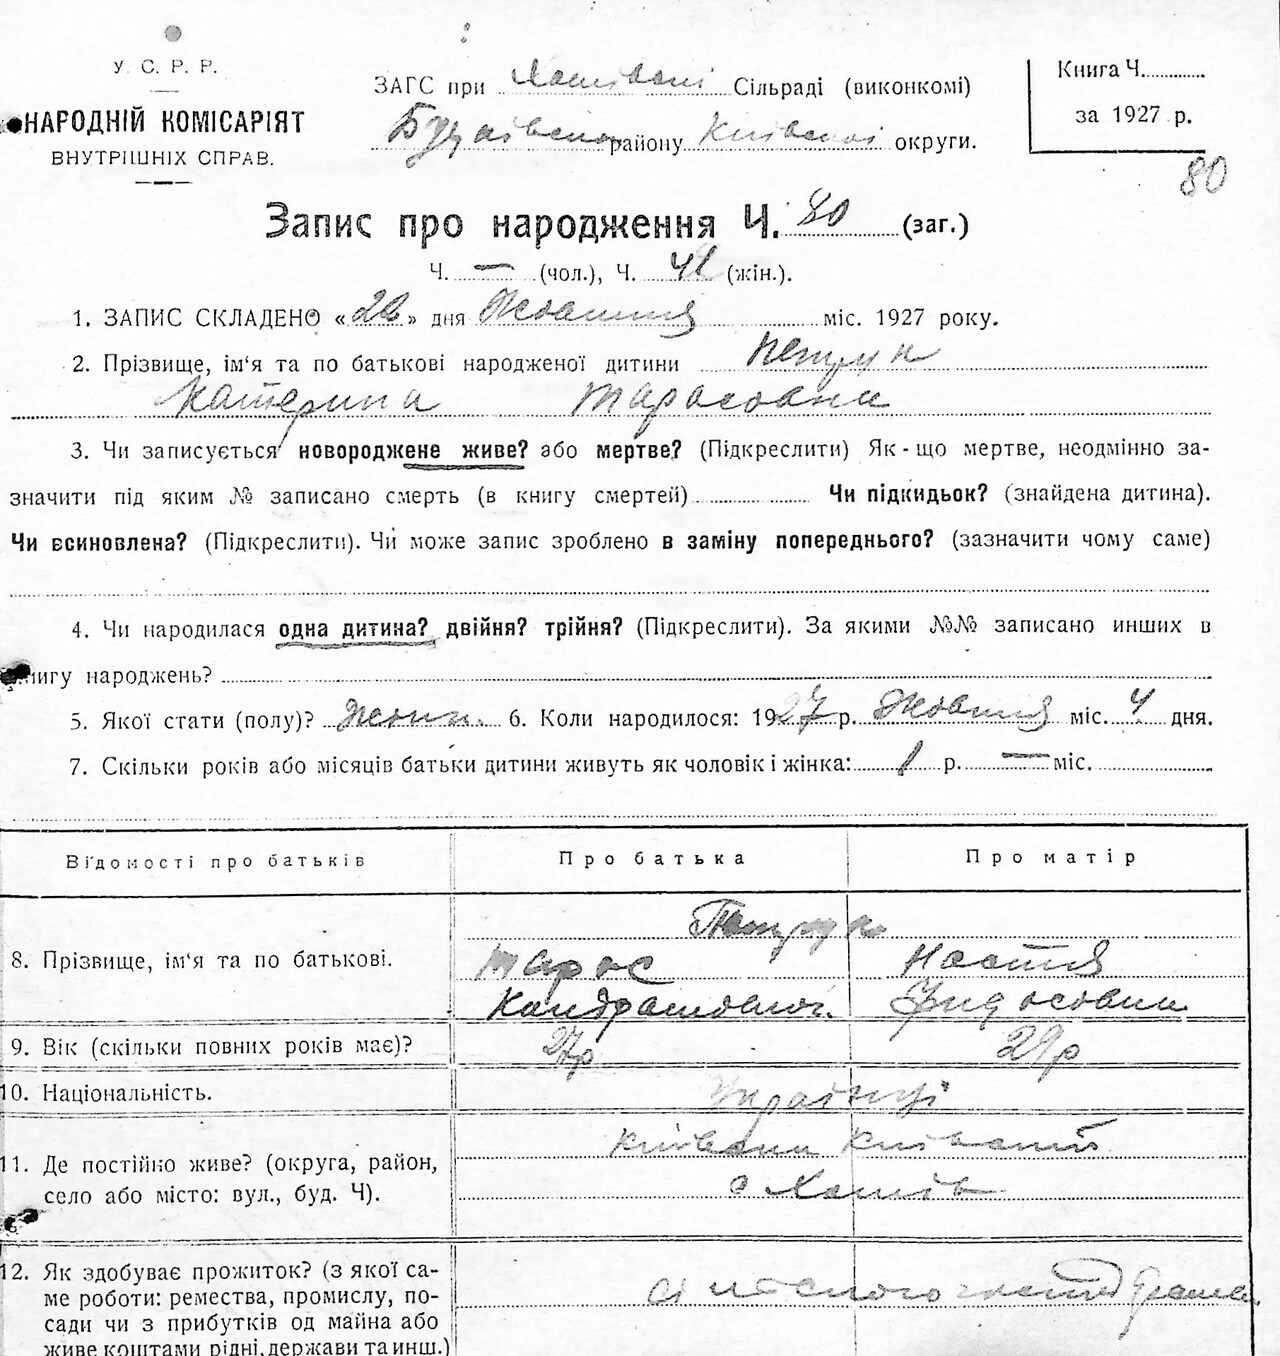 У. С. Р. Р.
НАРОДНІЙ КОМІСАРІЯТ
ВНУТРІШНІХ СПРАВ.
ЗАГС при Хотівські Сільраді (виконкомі)
району Київської округи.
Книга Ч.
за 1927 р.
80
Запис про народження Ч. 80 (заг.)
Ч. — (чол.), Ч. 41 (жін.).
1. ЗАПИС СКЛАДЕНО «26» дня Жовтня міс. 1927 року.
2. Прізвище, ім'я та по батькові народженої дитини Петрук
Катерина Тарасовна
3. Чи записується новороджене живе? або мертве? (Підкреслити) Як-що мертве, неодмінно за-
значити під яким № записано смерть (в книгу смертей) Чи підкидьок? (знайдена дитина).
Чи всиновлена? (Підкреслити). Чи може запис зроблено в заміну попереднього? (зазначити чому саме)
4. Чи народилася одна дитина? двійня? трійня? (Підкреслити). За якими №№ записано инших в
книгу народжень?
5. Якої стати (полу)? жіноч. 6. Коли народилося: 1927 р. Жовтня міс. 4 дня.
7. Скільки років або місяців батьки дитини живуть як чоловік і жінка: 1 р. — міс.
Відомості про батьків Про батька Про матір
Петрук
8. Прізвище, ім'я та по батькові. Тарас Настя
Кондратович.
9. Вік (скільки повних років має)? 27р 29р
10. Національність. Українці
11. Де постійно живе? (округа, район,
село або місто: вул., буд. Ч). с Хотів
12. Як здобуває прожиток? (з якої са-
ме роботи: ремества, промислу, по-
сади чи з прибутків од майна або
живе коштами рідні, держави та инш.)